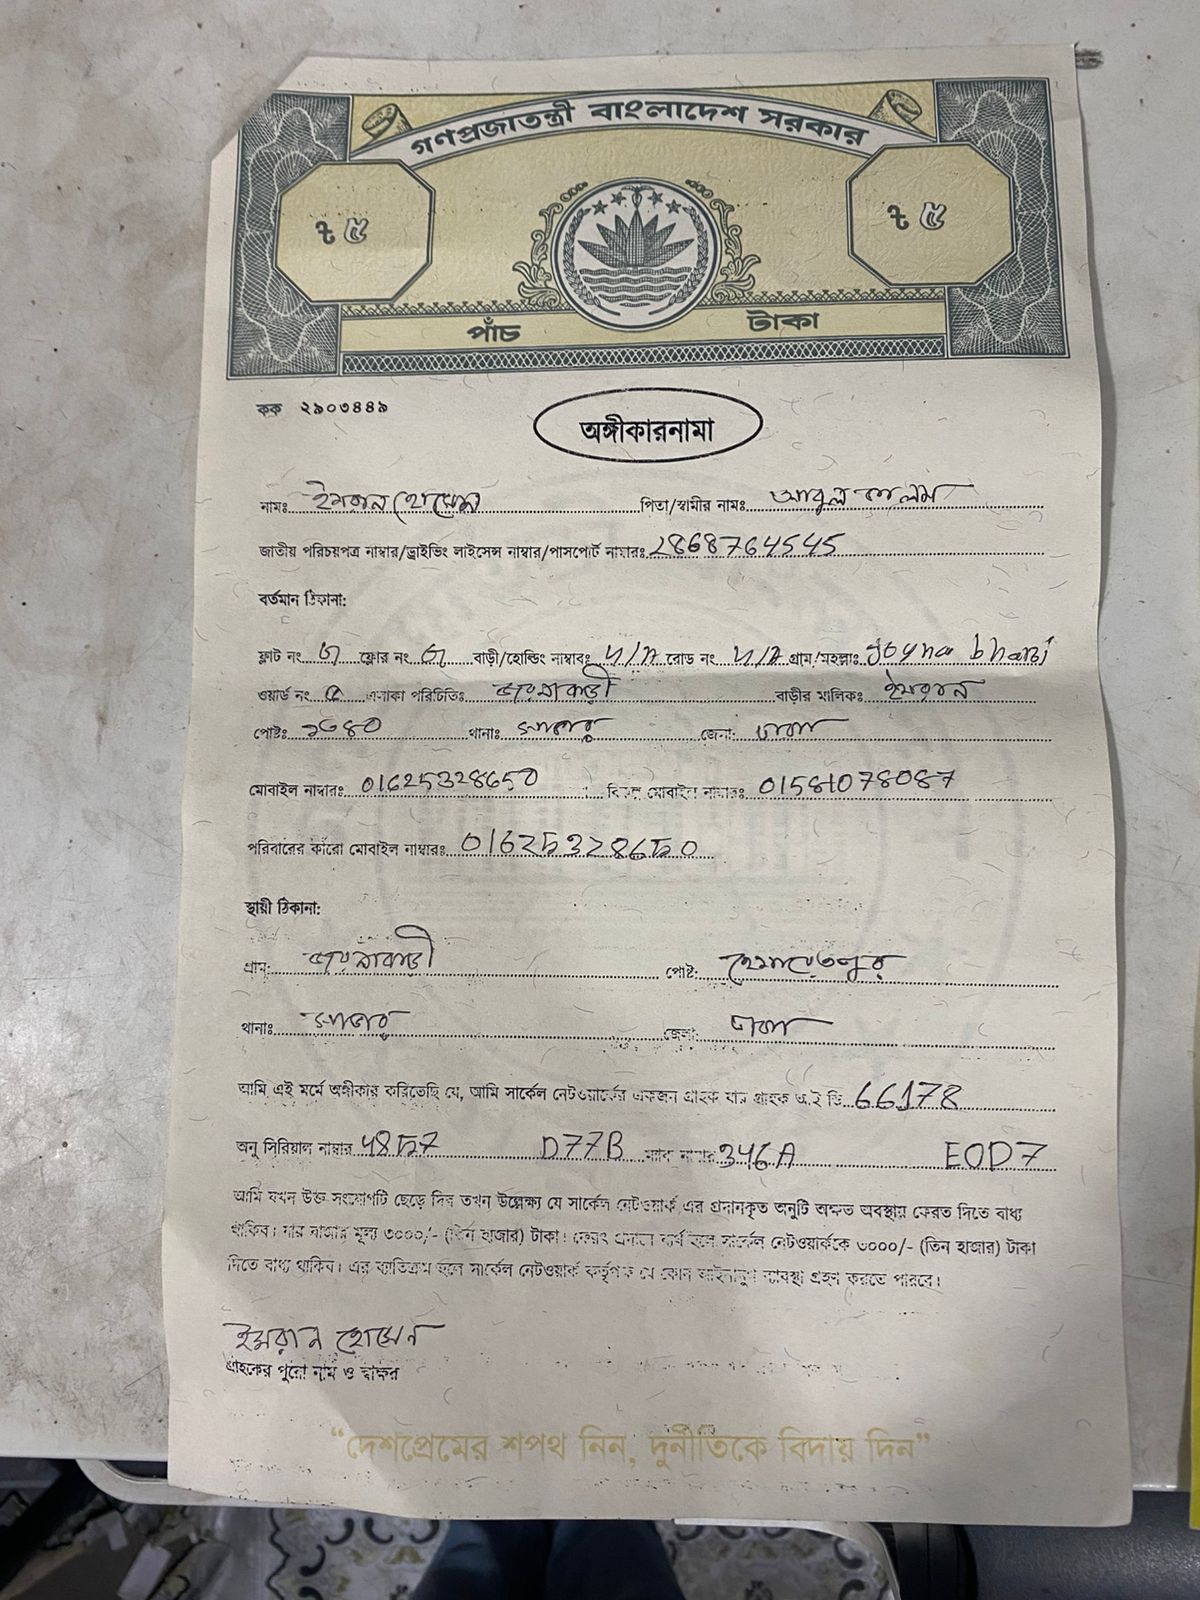 গণপ্রজাতন্ত্রী বাংলাদেশ সরকার
৳ ৫ ৳ ৫
পাঁচ টাকা
কক ২৯০৩৪৪৯
অঙ্গীকারনামা
নামঃ ইমরান হোসেন পিতা/স্বামীর নামঃ আবুল কালাম
জাতীয় পরিচয়পত্র নাম্বার/ড্রাইভিং লাইসেন্স নাম্বার/পাসপোর্ট নাম্বারঃ 2868764545
বর্তমান ঠিকানা:
ফ্লাট নং ৩ ফ্লোর নং ৩ বাড়ী/হোল্ডিং নাম্বারঃ N/A রোড নং N/A গ্রাম/মহল্লাঃ Joyna bhari
ওয়ার্ড নং ৫ এলাকা পরিচিতিঃ জয়নাবাড়ী বাড়ীর মালিকঃ ইমরান
পোষ্টঃ ১৩৪০ থানাঃ সাভার জেলা: ঢাকা
মোবাইল নাম্বারঃ 01625328650 বিকল্প মোবাইল নাম্বারঃ 01581078087
পরিবারের কারো মোবাইল নাম্বারঃ 01625328650
স্থায়ী ঠিকানা:
গ্রাম: জয়নাবাড়ী পোষ্ট: হেমায়েতপুর
থানাঃ সাভার জেলা: ঢাকা
আমি এই মর্মে অঙ্গীকার করিতেছি যে, আমি সার্কেল নেটওয়ার্কের একজন গ্রাহক যার গ্রাহক আই ডি 66178
অনু সিরিয়াল নাম্বার 4857 D77B ম্যাক নাম্বার 346A E0D7
আমি যখন উক্ত সংযোগটি ছেড়ে দিব তখন উল্লেক্ষ্য যে সার্কেল নেটওয়ার্ক এর প্রদানকৃত অনুটি অক্ষত অবস্থায় ফেরত দিতে বাধ্য
থাকিব। যার বাজার মূল্য ৩০০০/- (তিন হাজার) টাকা। ফেরৎ প্রদানে ব্যর্থ হলে সার্কেল নেটওয়ার্ককে ৩০০০/- (তিন হাজার) টাকা
দিতে বাধ্য থাকিব। এর ব্যতিক্রম হলে সার্কেল নেটওয়ার্ক কর্তৃপক্ষ যে কোন আইনানুগ ব্যবস্থা গ্রহণ করতে পারবে।
ইমরান হোসেন
গ্রাহকের পুরো নাম ও স্বাক্ষর
“দেশপ্রেমের শপথ নিন, দুর্নীতিকে বিদায় দিন”